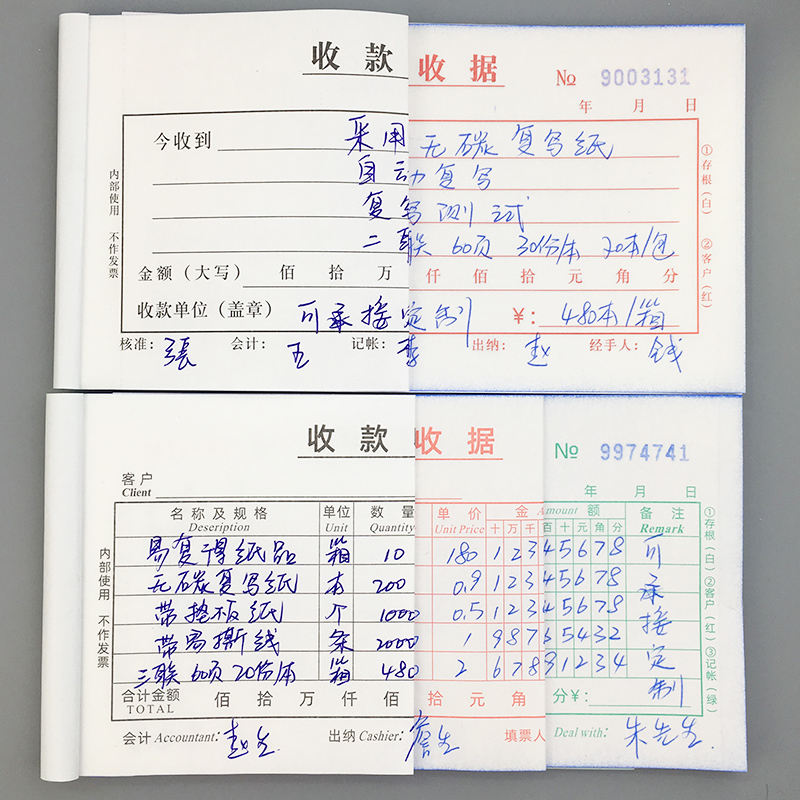 收款收据
№ 9003131
年 月 日
今收到 采用无碳复写纸
自动复写
复写测试
二联 60页 30份/本 20本/包
金额（大写） 佰 拾 万 仟 佰 拾 元 角 分
收款单位（盖章） 可承接定制 ¥：480本/箱
核准：張 会计：五 记帐：李 出纳：赵 经手人：钱
内部使用 不作发票
①存根（白） ②客户（红）
收款收据
№ 9974741
客户
Client
年 月 日
名称及规格 单位 数量 单价 金 Amount 额 备注
Deseription Unit Quantity Unit Price 十 万 千 百 十 元 角 分 Remark
易复得纸品 箱 10 180 1 2 3 4 5 6 7 8 可
无碳复写纸 本 200 0.9 1 2 3 4 5 6 7 8 承
带垫板纸 个 1000 0.5 1 2 3 4 5 6 7 8 接
带易撕线 条 2000 1 9 8 7 6 5 4 3 2 定
三联 60页 20份/本 箱 480 2 6 7 8 9 1 2 3 4
合计金额 佰 拾 万 仟 佰 拾 元 角 分¥： 制
TOTAL
会计 Accountant：赵生 出纳 Cashier：詹生 填票人 Deal with：朱先生
内部使用 不作发票
①存根（白） ②客户（红） ③记帐（绿）